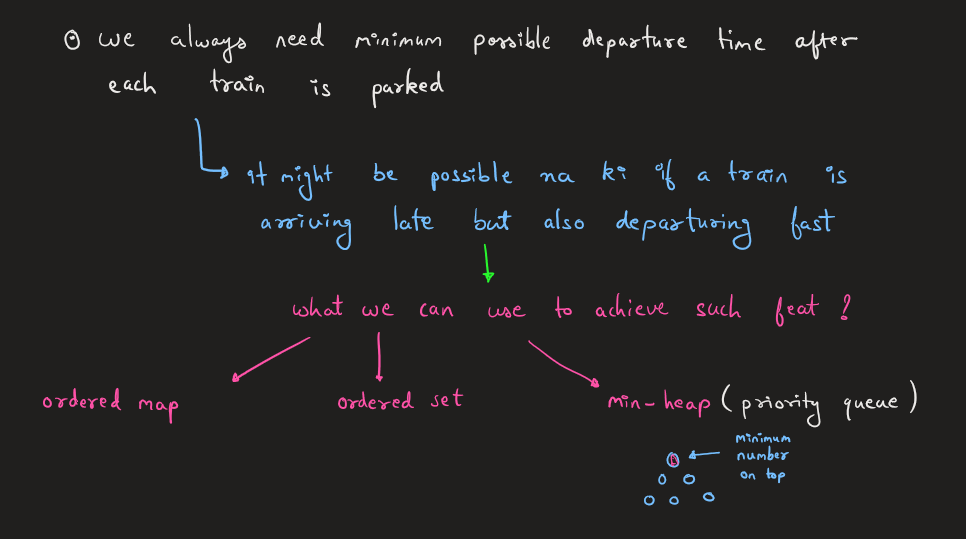 we always need minimum possible departure time after
each train is parked
It might be possible na ki if a train is
arriving late but also departuring fast
what we can use to achieve such feat ?
ordered map ordered set min-heap (priority queue)
minimum
number
on top